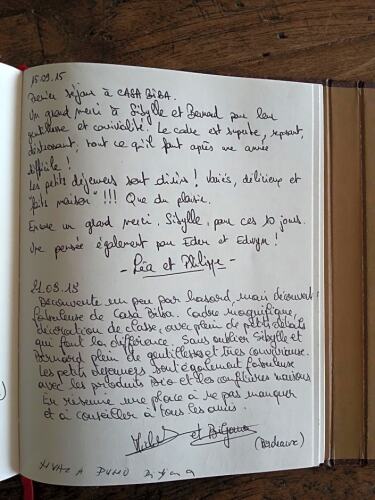 15.09.15
Dernier séjour à CASA BIBA.
Un grand merci à Sibylle et Bernard pour leur
gentillesse et convivialité! Le cadre est superbe, reposant,
dépaysant, tout ce qu'il faut après une année
difficile!
Les petits déjeuners sont divins! Variés, délicieux et
"faits maison"!!! Que du plaisir.
Encore un grand merci, Sibylle, pour ces 10 jours.
Une pensée également pour Eder et Edwyn!
- Léa et Philippe -
21.09.15
Découverte un peu par hasard, mais découverte
fabuleuse de Casa Biba. Cadre magnifique,
décoration de classe, avec plein de petits détails
qui font la différence. Sans oublier Sibylle et
Bernard plein de gentillesse et très conviviaux.
Les petits déjeuners sont également fabuleux
avec les produits Bio et les confitures maisons
En résumé une place à ne pas manquer
et à conseiller à tous les amis.
et
(Bordeaux)